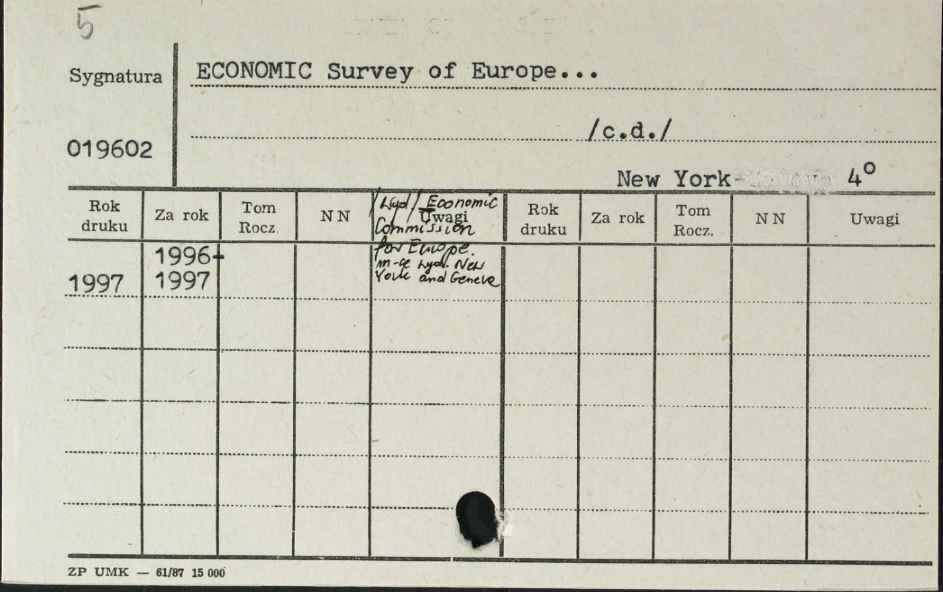 5
Sygnatura
ECONOMIC Survey of Europe...
/c.d./
019602
New York- 4°
Rok druku Za rok Tom Rocz. NN Uwagi Rok druku Za rok Tom Rocz. NN Uwagi
/Wyd/ Economic
Commission
for Europe.
m-ce wyd. New
York and Geneve
1996-
1997 1997
ZP UMK — 61/87 15 000